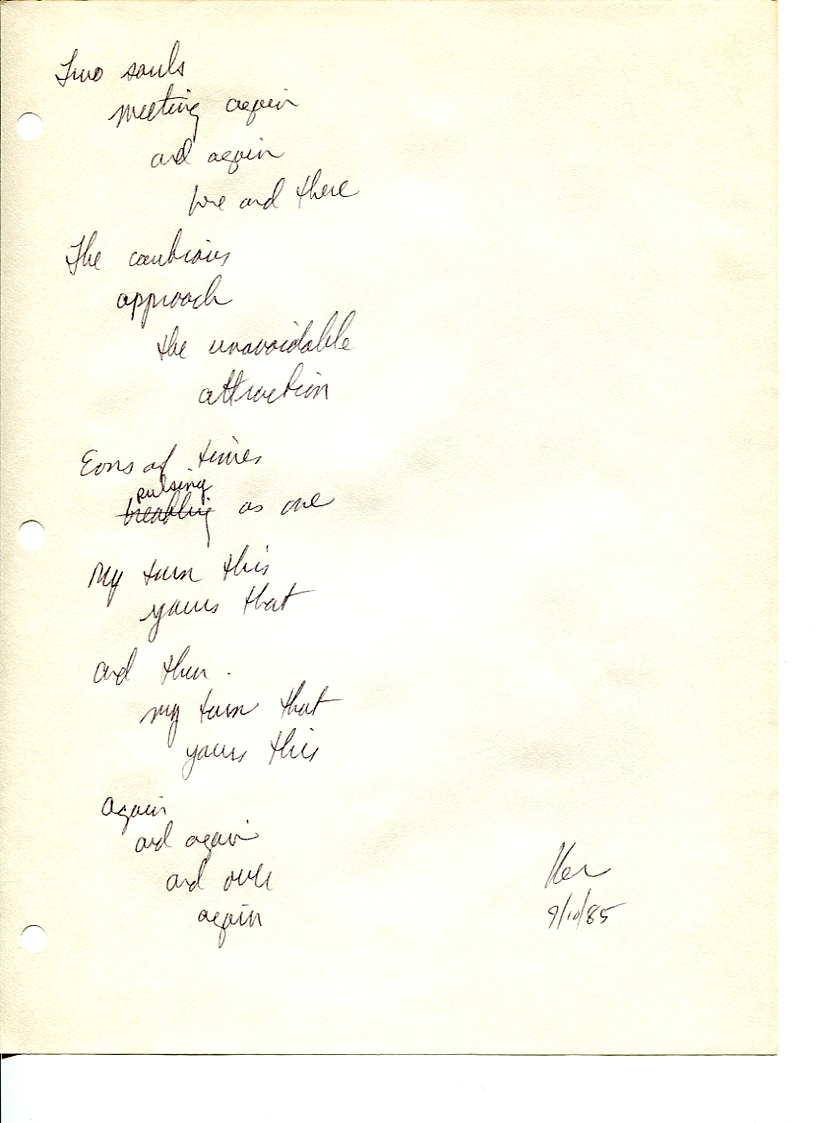 Two souls
meeting again
and again
here and there
The cautious
approach
the unavoidable
attraction
Eons of times
pulsing
breathing as one
My turn this
yours that
and then.
my turn that
yours this
again
and again
and over
again
Ken
9/10/85